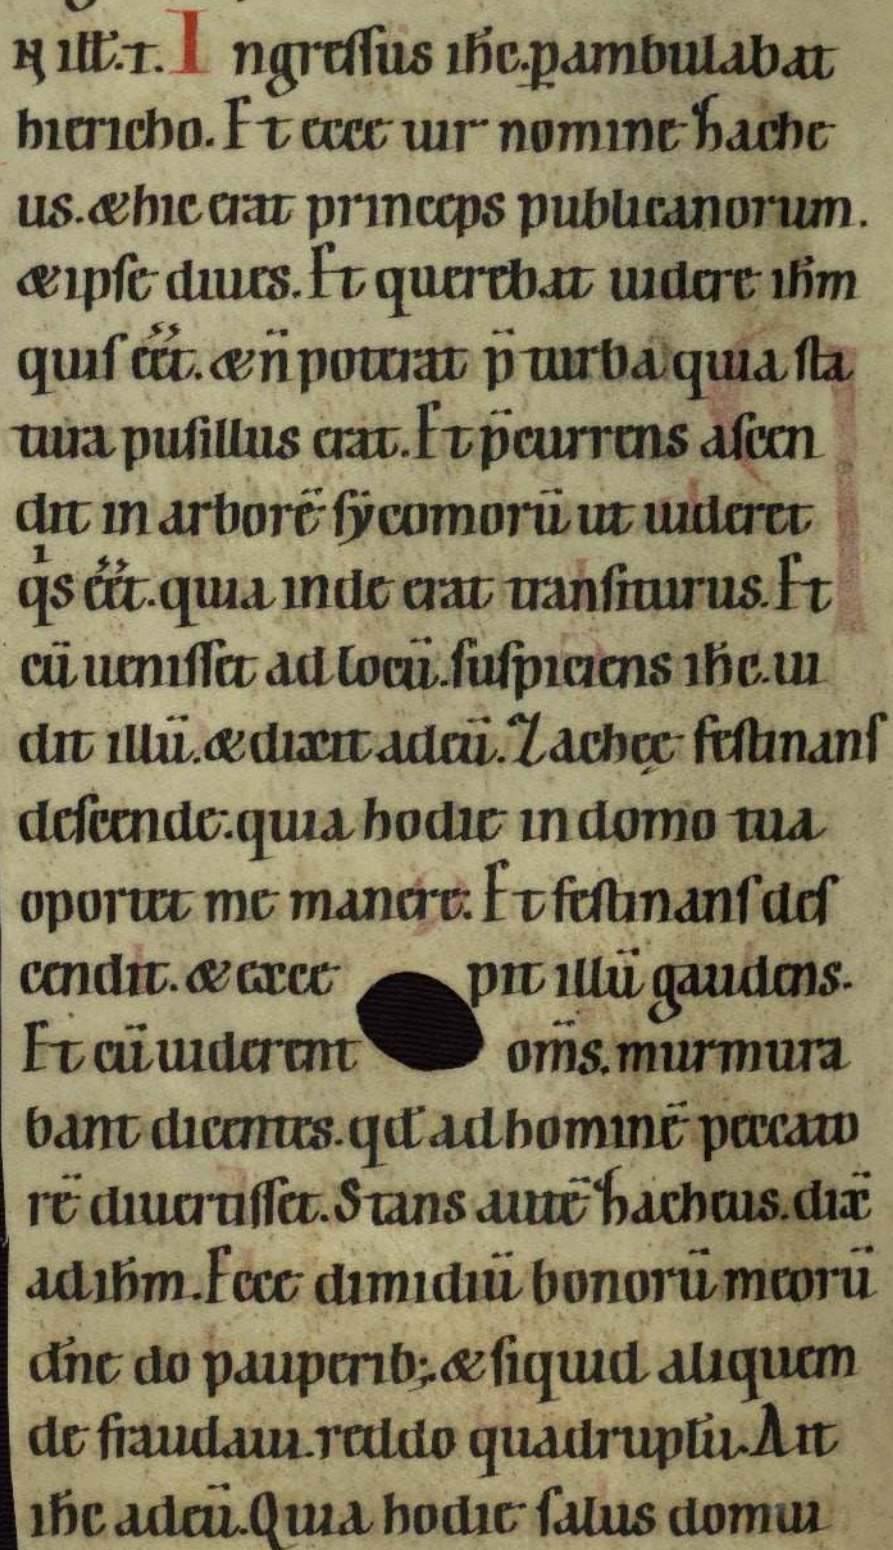 ꝶ ill̅. t. Ingreſſus ih̅c. ꝑambulabat
hiericho. Et ecce uir nomine hache
us. & hic erat princeps publicanorum.
& ipſe diues. Et querebat uidere ih̅m
quiſ eēt. & n̅ poterat p̅ turba quia ſta
tura puſillus erat. Et p̅currens aſcen
dit in arborē ſẏcomorū ut uideret
qͥs eēt. quia inde erat tranſiturus. Et
cū ueniſſet ad locū. ſuſpiciens ih̅c. ui
dit illū. & dixit ad eū. Zachęe feſtinanſ
deſcende. quia hodie in domo tua
oportet me manere. Et feſtinanſ deſ
cendit. & exce pit illū gaudens.
Et cū uiderent om̅s. murmura
bant dicentes. qd̅ ad hominē peccato
rē diuertiſſet. Stans autē hacheus. dix̅
ad ih̅m. Ecce dimidiū bonorū meorū
dn̅e do pauperib;. & ſiquid aliquem
de fraudaui. reddo quadruplū. Ait
ih̅c ad eū. Quia hodie ſalus domui